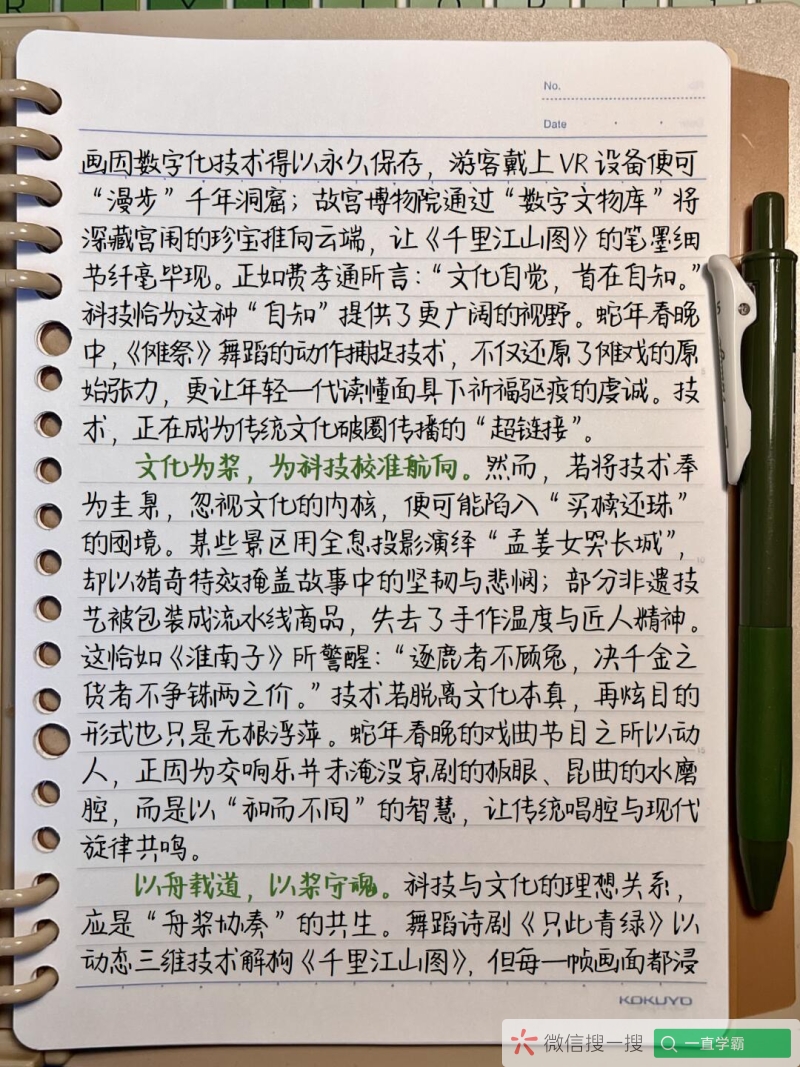 No.
Date
画因数字化技术得以永久保存，游客戴上VR设备便可
“漫步”千年洞窟；故宫博物院通过“数字文物库”将
深藏宫闱的珍宝推向云端，让《千里江山图》的笔墨细
节纤毫毕现。正如费孝通所言：“文化自觉，首在自知。”
科技恰为这种“自知”提供了更广阔的视野。蛇年春晚
中，《傩祭》舞蹈的动作捕捉技术，不仅还原了傩戏的原
始张力，更让年轻一代读懂面具下祈福驱疫的虔诚。技
术，正在成为传统文化破圈传播的“超链接”。
文化为桨，为科技校准航向。然而，若将技术奉
为圭臬，忽视文化的内核，便可能陷入“买椟还珠”
的困境。某些景区用全息投影演绎“孟姜女哭长城”，
却以猎奇特效掩盖故事中的坚韧与悲悯；部分非遗技
艺被包装成流水线商品，失去了手作温度与匠人精神。
这恰如《淮南子》所警醒：“逐鹿者不顾兔，决千金之
货者不争铢两之价。”技术若脱离文化本真，再炫目的
形式也只是无根浮萍。蛇年春晚的戏曲节目之所以动
人，正因为交响乐并未淹没京剧的板眼、昆曲的水磨
腔，而是以“和而不同”的智慧，让传统唱腔与现代
旋律共鸣。
以舟载道，以桨守魂。科技与文化的理想关系，
应是“舟桨协奏”的共生。舞蹈诗剧《只此青绿》以
动态三维技术解构《千里江山图》，但每一帧画面都浸
KOKUYO
微信搜一搜
一直学霸